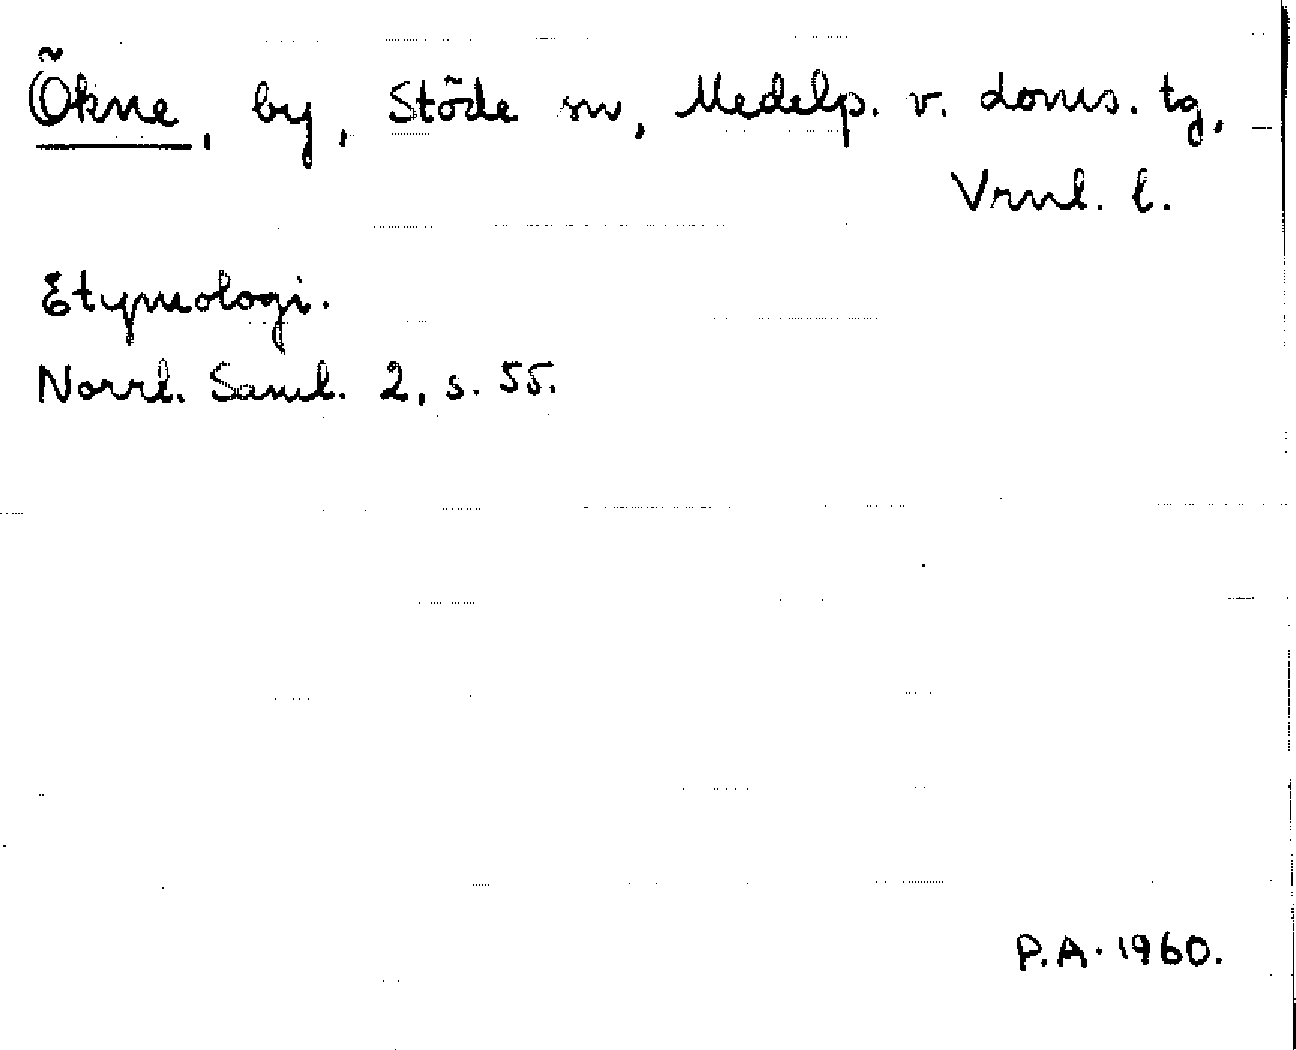 Ökne, by, Stöde sn, Medelp. v. doms. tg,
Vrnl. l.
Etymologi.
Norrl. Saml. 2, s. 55.
P.A. 1960.